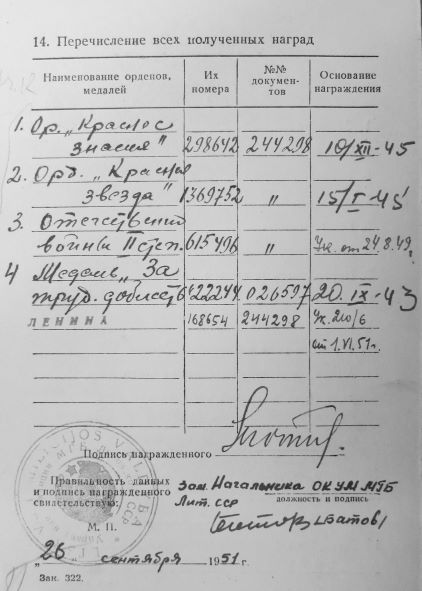 14. Перечисление всех полученных наград
Наименование орденов, медалей
Их номера
№№ документов
Основание награждения
1. Ор. „Красное знамя" 298642 244298 10/XII-45
2. Орд. „Красная звезда" 1369752 „ 15/I-45
3 Отечественной войны II степ. 615496 „ Ук. от 24.8.49г.
4 Медаль „За труд. доблесть 026597 20.IX-43
ЛЕНИНА 168654 244298 Ук. 210/6
от 1.VI.51г.
Подпись награжденного
Правильность данных
и подпись награжденного
свидетельствую:
Зам. Начальника ОКУМГБ
должность и подпись
Лит. ССР
М. П.
„26„ сентября 1951 г.
Зак. 322.